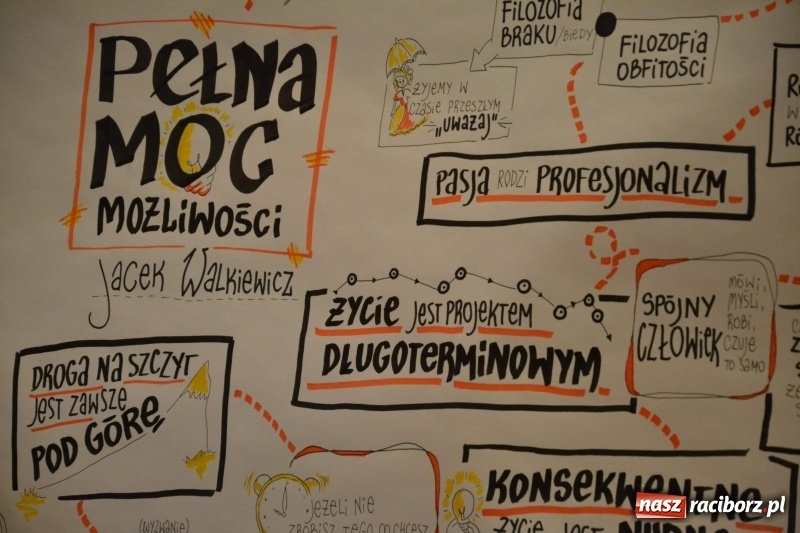 PEŁNA
MOC
MOŻLIWOŚCI
Jacek Walkiewicz
FILOZOFIA
BRAKU/BIEDY
FILOZOFIA
OBFITOŚCI
ŻYJEMY W
CZASIE PRZESZŁYM
„UWAŻAJ"
PASJA RODZI PROFESJONALIZM
ŻYCIE JEST PROJEKTEM
DŁUGOTERMINOWYM
SPÓJNY
CZŁOWIEK
MÓWI,
MYŚLI,
ROBI,
CZUJE
TO SAMO
DROGA NA SZCZYT
JEST ZAWSZE
POD GÓRĘ
JEŻELI NIE
ZROBISZ TEGO CO CHCESZ
(WYZWANIE)
KONSEKWENTNE
ŻYCIE JEST NUDNE
nasz raciborz.pl